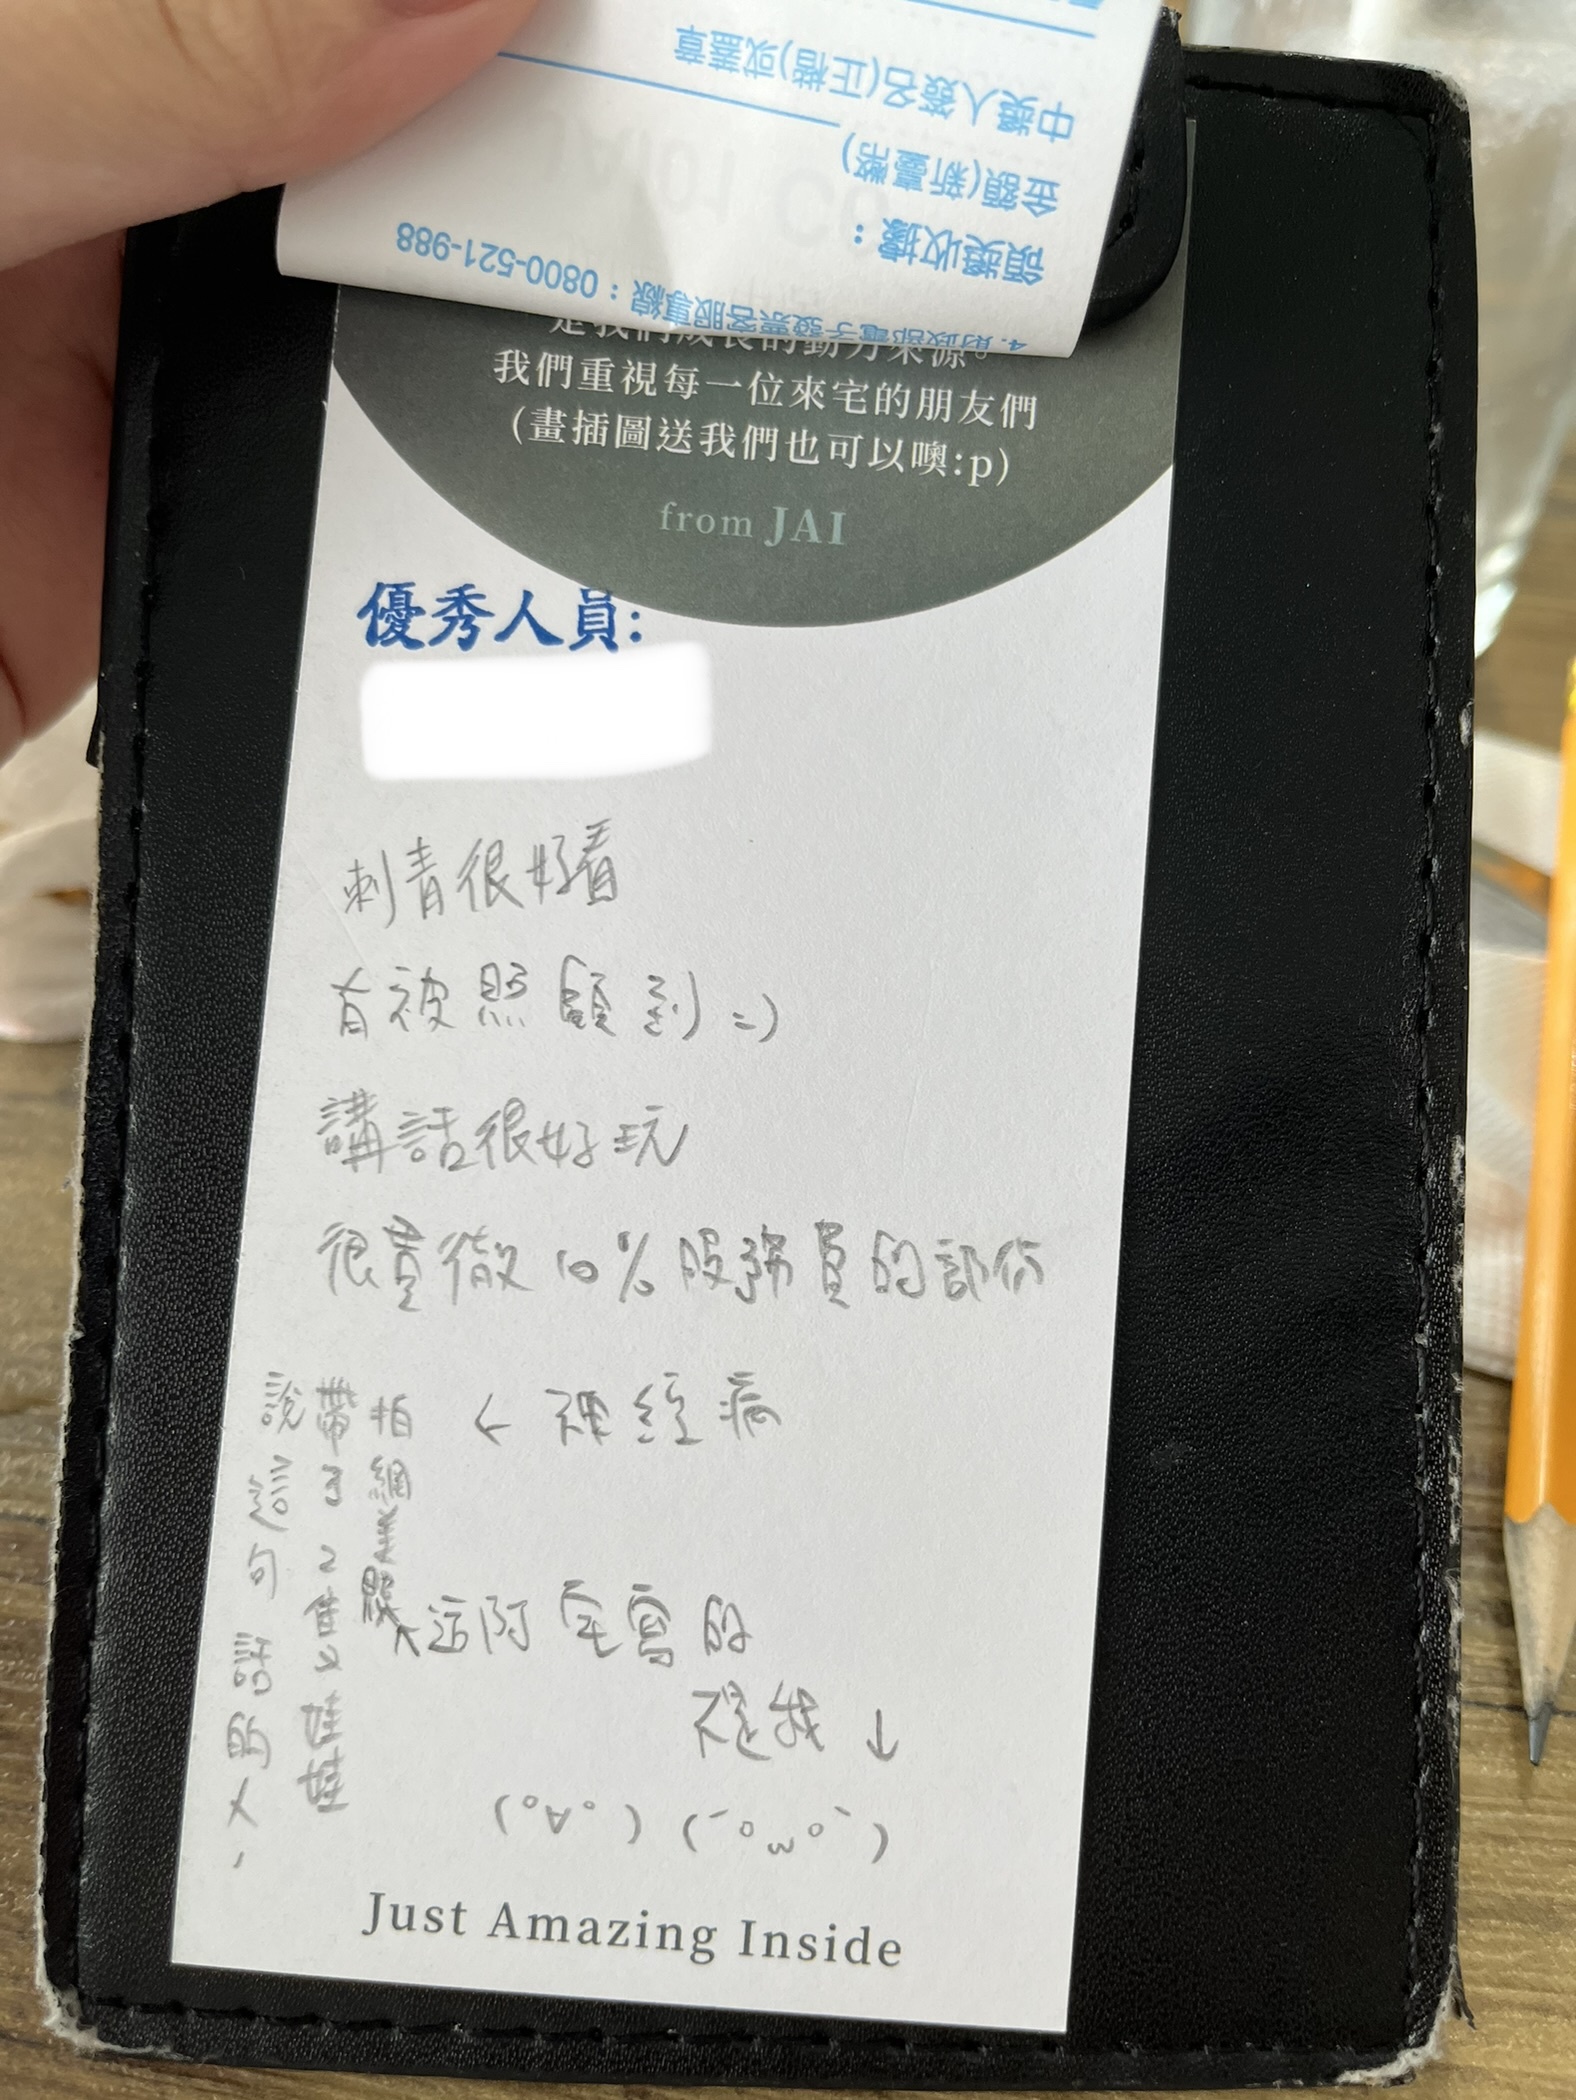 中獎人簽名(正楷)或蓋章
金額(新臺幣)
領獎收據：
4.財政部電子發票客服專線：0800-521-988
是我們成長的動力來源。
我們重視每一位來宅的朋友們
(畫插圖送我們也可以噢:p)
from JAI
優秀人員:
刺青很好看
有被照顧到=)
講話很好玩
很貫徹10%服務員的部份
← 神經病
這阿宅寫的
不是我 ↓
(°∀°) (´°ω°`)
說這句話的人,
帶了2隻娃娃
拍網美照
Just Amazing Inside